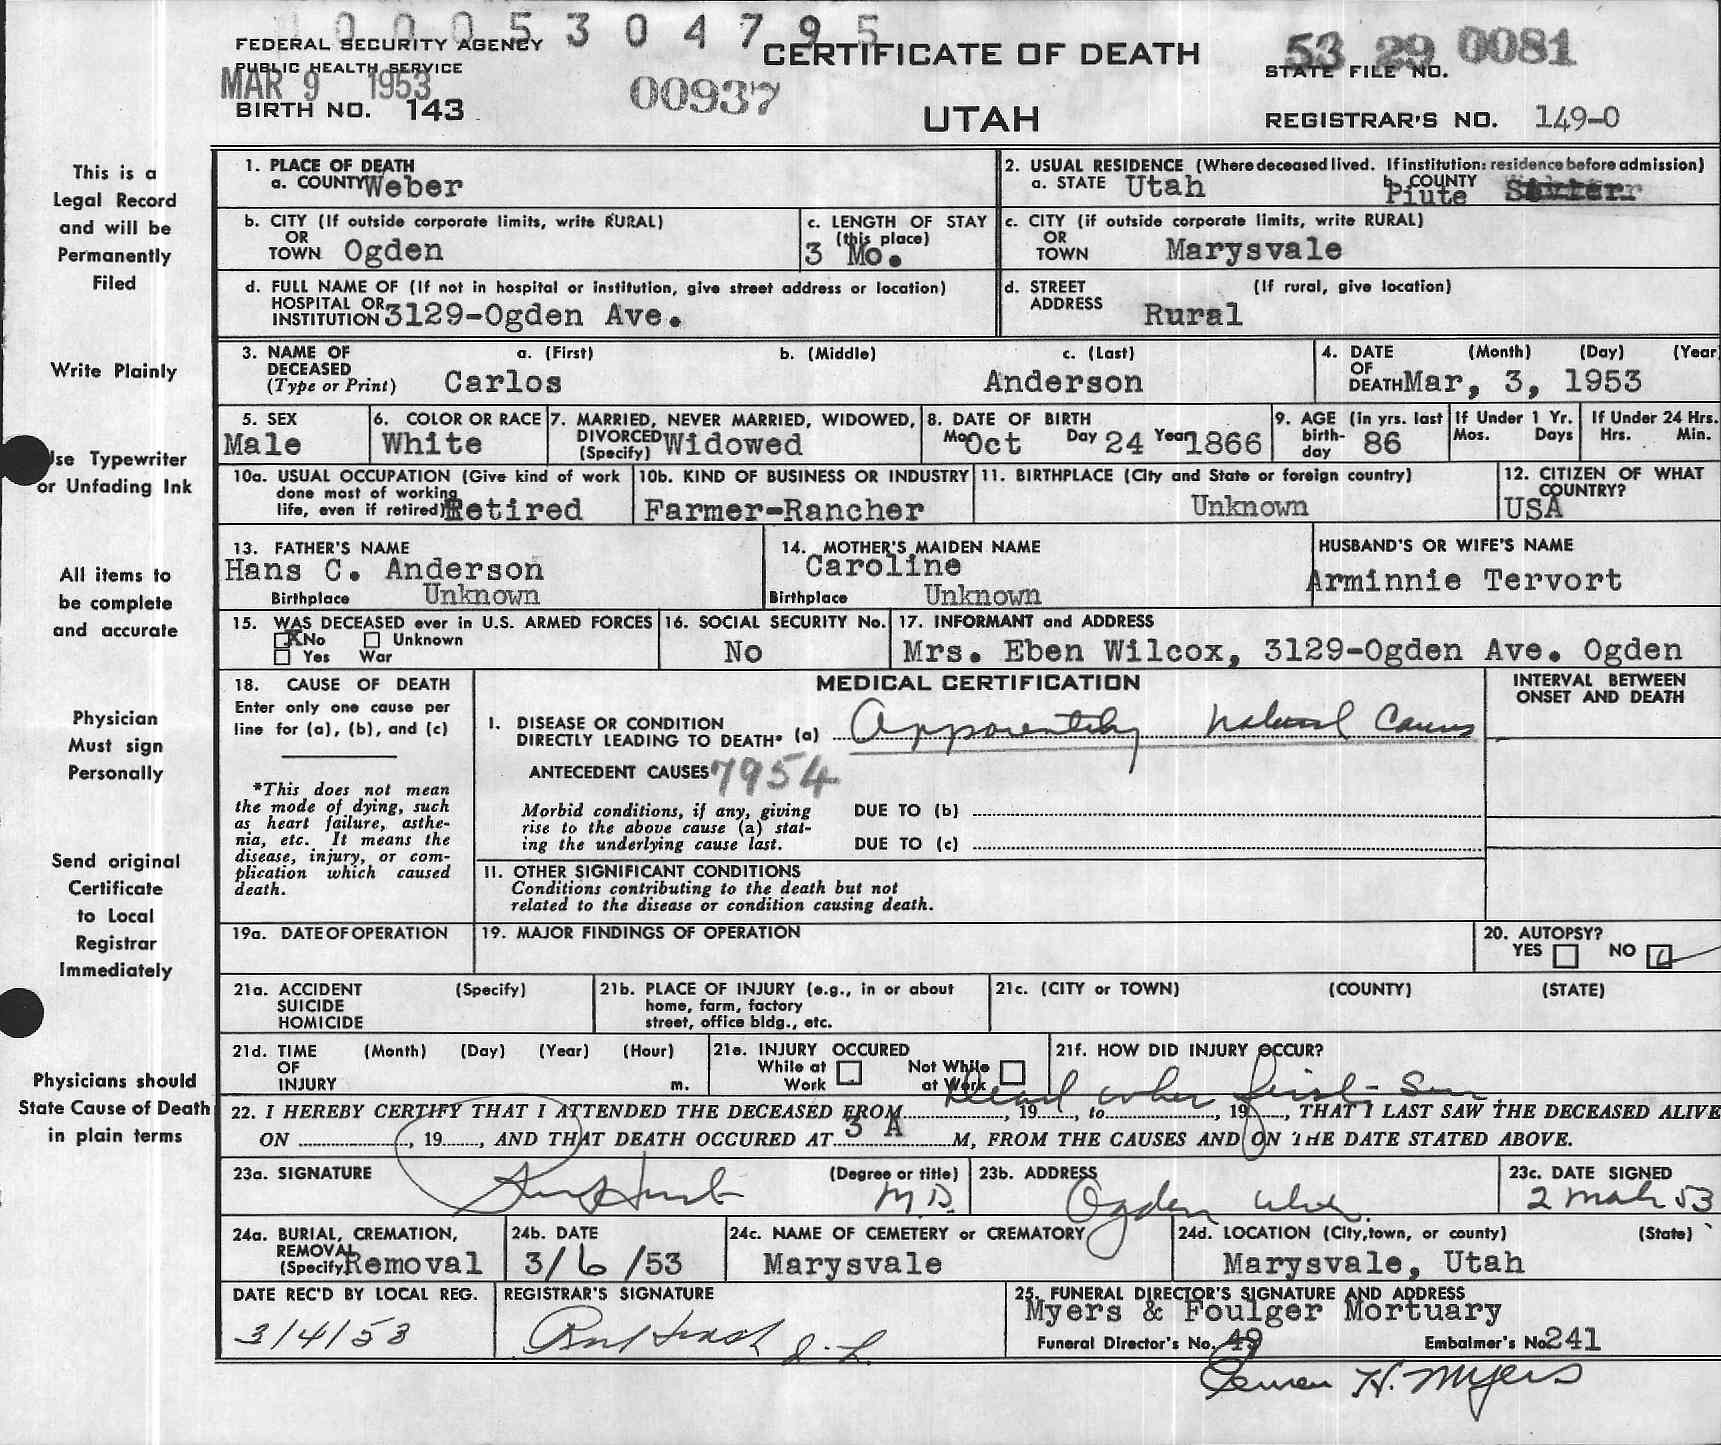 0 0 0 5 3 0 4 7 9 5
FEDERAL SECURITY AGENCY
PUBLIC HEALTH SERVICE
MAR 9 1953
BIRTH NO. 143
00937
CERTIFICATE OF DEATH
UTAH
53 29 0081
STATE FILE NO.
REGISTRAR'S NO. 149-0
This is a
Legal Record
and will be
Permanently
Filed
Write Plainly
Use Typewriter
or Unfading Ink
All items to
be complete
and accurate
Physician
Must sign
Personally
Send original
Certificate
to Local
Registrar
Immediately
Physicians should
State Cause of Death
in plain terms
1. PLACE OF DEATH
a. COUNTY Weber
2. USUAL RESIDENCE (Where deceased lived. If institution: residence before admission)
a. STATE Utah b. COUNTY Piute
b. CITY (If outside corporate limits, write RURAL)
OR
TOWN Ogden
c. LENGTH OF STAY
(this place)
3 Mo.
c. CITY (if outside corporate limits, write RURAL)
OR
TOWN Marysvale
d. FULL NAME OF (If not in hospital or institution, give street address or location)
HOSPITAL OR
INSTITUTION 3129-Ogden Ave.
d. STREET (If rural, give location)
ADDRESS Rural
3. NAME OF a. (First) b. (Middle) c. (Last)
DECEASED
(Type or Print) Carlos Anderson
4. DATE (Month) (Day) (Year
OF
DEATH Mar, 3, 1953
5. SEX
Male
6. COLOR OR RACE
White
7. MARRIED, NEVER MARRIED, WIDOWED,
DIVORCED
(Specify) Widowed
8. DATE OF BIRTH
Mo Oct Day 24 Year 1866
9. AGE (in yrs. last
birth-
day 86
If Under 1 Yr.
Mos. Days
If Under 24 Hrs.
Hrs. Min.
10a. USUAL OCCUPATION (Give kind of work
done most of working
life, even if retired) Retired
10b. KIND OF BUSINESS OR INDUSTRY
Farmer-Rancher
11. BIRTHPLACE (City and State or foreign country)
Unknown
12. CITIZEN OF WHAT
COUNTRY?
USA
13. FATHER'S NAME
Hans C. Anderson
Birthplace Unknown
14. MOTHER'S MAIDEN NAME
Caroline
Birthplace Unknown
HUSBAND'S OR WIFE'S NAME
Arminnie Tervort
15. WAS DECEASED ever in U.S. ARMED FORCES
X No Unknown
Yes War
16. SOCIAL SECURITY No.
No
17. INFORMANT and ADDRESS
Mrs. Eben Wilcox, 3129-Ogden Ave. Ogden
18. CAUSE OF DEATH
Enter only one cause per
line for (a), (b), and (c)
*This does not mean
the mode of dying, such
as heart failure, asthe-
nia, etc. It means the
disease, injury, or com-
plication which caused
death.
MEDICAL CERTIFICATION
INTERVAL BETWEEN
ONSET AND DEATH
I. DISEASE OR CONDITION
DIRECTLY LEADING TO DEATH* (a) Apparently natural Causes
ANTECEDENT CAUSES 7954
Morbid conditions, if any, giving
rise to the above cause (a) stat-
ing the underlying cause last.
DUE TO (b)
DUE TO (c)
II. OTHER SIGNIFICANT CONDITIONS
Conditions contributing to the death but not
related to the disease or condition causing death.
19a. DATE OF OPERATION
19. MAJOR FINDINGS OF OPERATION
20. AUTOPSY?
YES NO
21a. ACCIDENT (Specify)
SUICIDE
HOMICIDE
21b. PLACE OF INJURY (e.g., in or about
home, farm, factory
street, office bldg., etc.
21c. (CITY or TOWN) (COUNTY) (STATE)
21d. TIME (Month) (Day) (Year) (Hour)
OF
INJURY m.
21e. INJURY OCCURED
While at Not While
Work at Work
21f. HOW DID INJURY OCCUR?
Dead when first Seen
22. I HEREBY CERTIFY THAT I ATTENDED THE DECEASED FROM, 19, to, 19, THAT I LAST SAW THE DECEASED ALIVE
ON, 19, AND THAT DEATH OCCURED AT 3 A M, FROM THE CAUSES AND ON THE DATE STATED ABOVE.
23a. SIGNATURE (Degree or title)
M.D.
23b. ADDRESS
Ogden Utah
23c. DATE SIGNED
2 Mar 53
24a. BURIAL, CREMATION,
REMOVAL
(Specify) Removal
24b. DATE
3/6/53
24c. NAME OF CEMETERY or CREMATORY
Marysvale
24d. LOCATION (City, town, or county) (State)
Marysvale, Utah
DATE REC'D BY LOCAL REG.
3/4/53
REGISTRAR'S SIGNATURE
25. FUNERAL DIRECTOR'S SIGNATURE AND ADDRESS
Myers & Foulger Mortuary
Funeral Director's No. 49 Embalmer's No 241
H. Myers